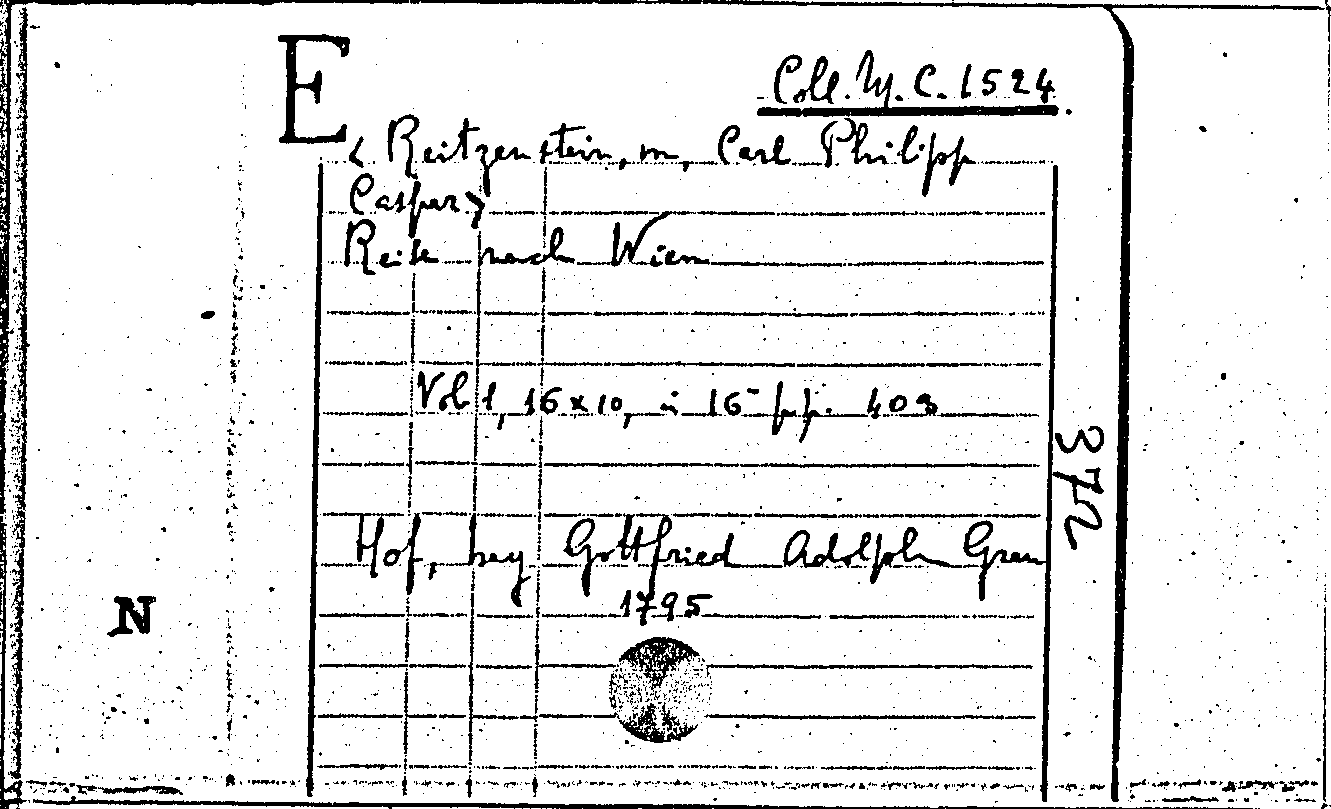 E
Coll. M. C. 1524.
< Reitzenstein, m, Carl Philipp
Casper>
Reise nach Wien
Vol 1, 16x10, in 16° pp. 403
372
Hof, bey Gottfried Adolph Grau
1795
N